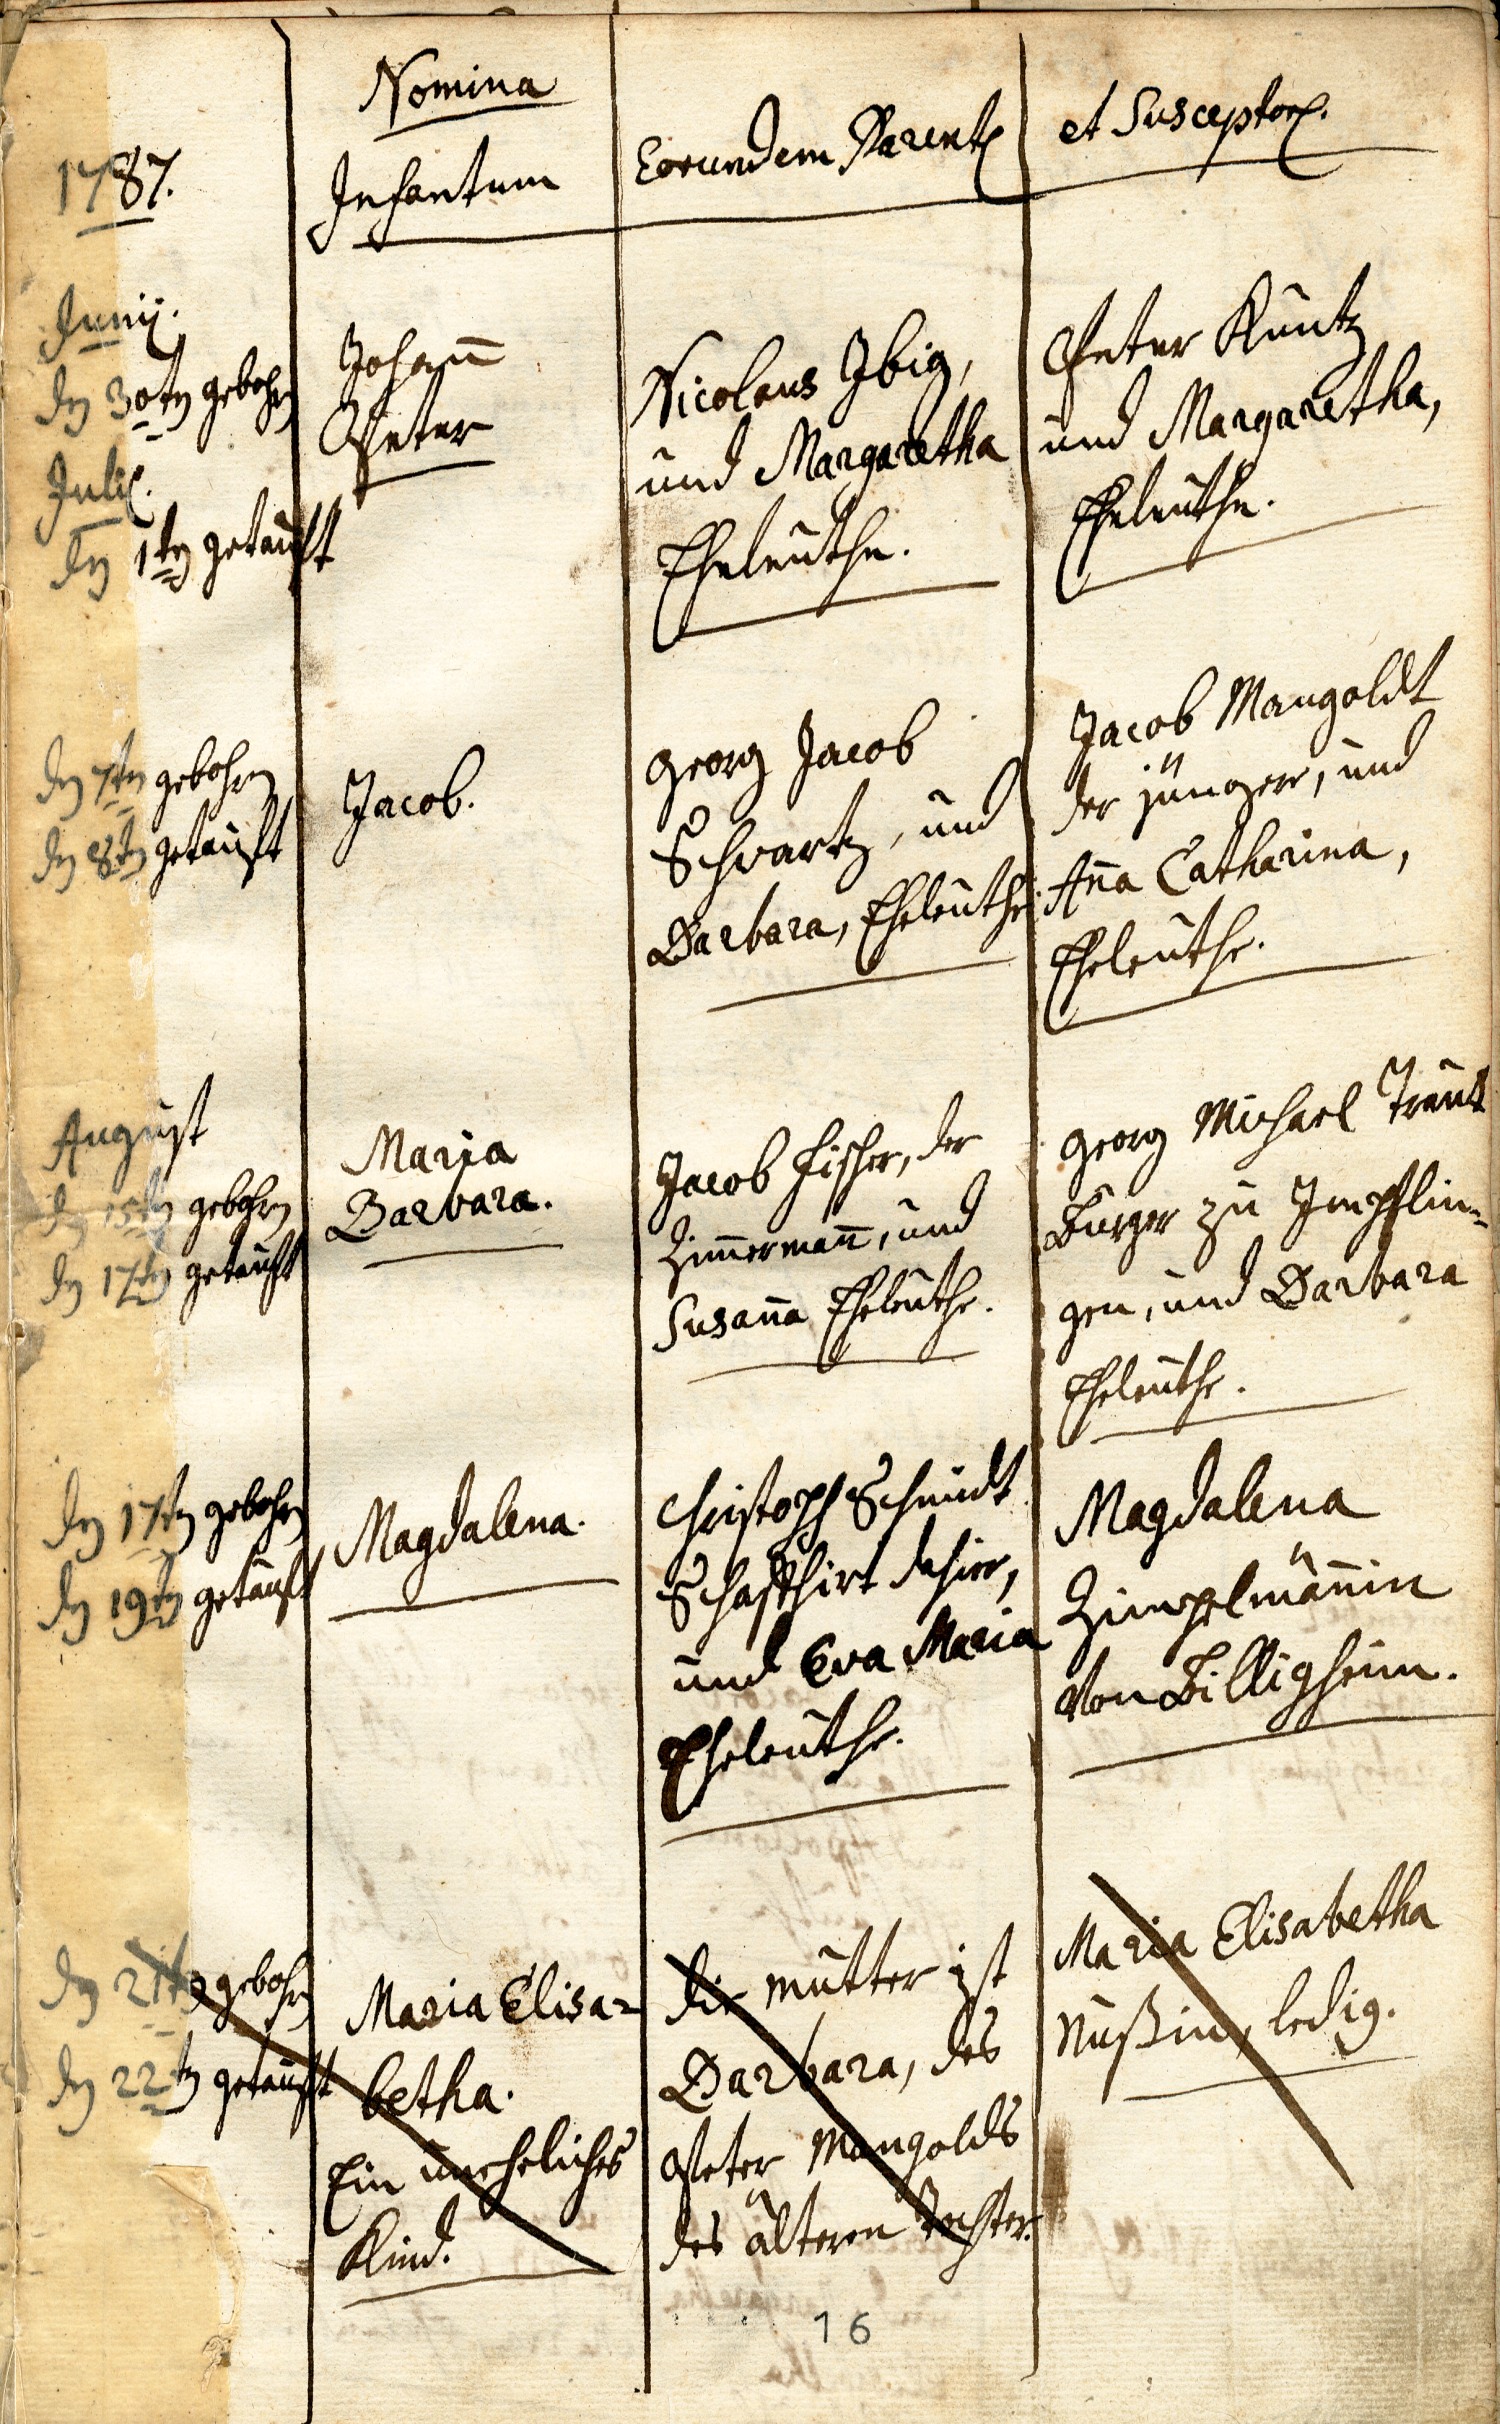 1787.
Nomina
Infantum
Eorundem Parent
et Susceptor.
Junij.
dn 30tn gebohrn
Julij.
dn 1tn getauft
Johan̄
Peter
Nicolaus Ibig,
und Margaretha
Eheleuthe.
Peter Kuntz
und Margaretha,
Eheleuthe.
dn 7tn gebohrn
dn 8tn getauft
Jacob.
Georg Jacob
Schwartz, und
Barbara, Eheleuthe
Jacob Mangoldt
der jüngere, und
An̄a Catharina,
Eheleuthe.
August
dn 15tn gebohrn
dn 17tn getauft
Maria
Barbara.
Jacob Fischer, der
Zim̄erman̄, und
Susan̄a Eheleuthe.
Georg Michael Traut
Burger zu Impflin-
gen, und Barbara
Eheleuthe.
dn 17tn gebohrn
dn 19tn getauft
Magdalena.
Christoph Schmidt
Schafhirt dahier,
und Eva Maria
Eheleuthe.
Magdalena
Zimpelmän̄in
von Billigheim.
dn 21tn gebohrn
dn 22tn getauft
Maria Elisa-
betha.
Ein uneheliches
Kind.
die Mutter ist
Barbara, des
Peter Mangolds
des älteren Tochter.
Maria Elisabetha
Nußin, ledig.
16